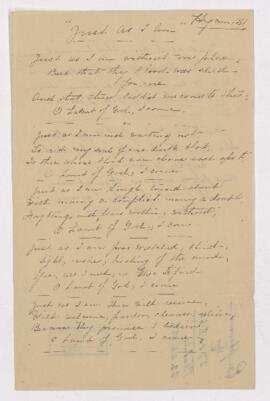 " Hymn 151
"Just As I Am"
Just as I am without one plea,
But that thy blood was shed
for me
And that thou bidst me come to thee
O Lamb of God, I come
Just as I am and waiting not
To rid my soul of one dark blot,
To thee whose blood can cleanse each spot
O Lamb of God, I come
Just as I am though tossed about
With many a conflict many a doubt
Fightings and fears within, without,
O Lamb of God, I come
Just as I am poor wretched, blind
Sight, riches, healing of the mind,
Yea, all I need, in Thee to find
O Lamb of God, I come
Just as I am Thou wilt receive,
Wilt welcome, pardon, cleanse, relieve,
Because thy promise I believe
O Lamb of God, I come